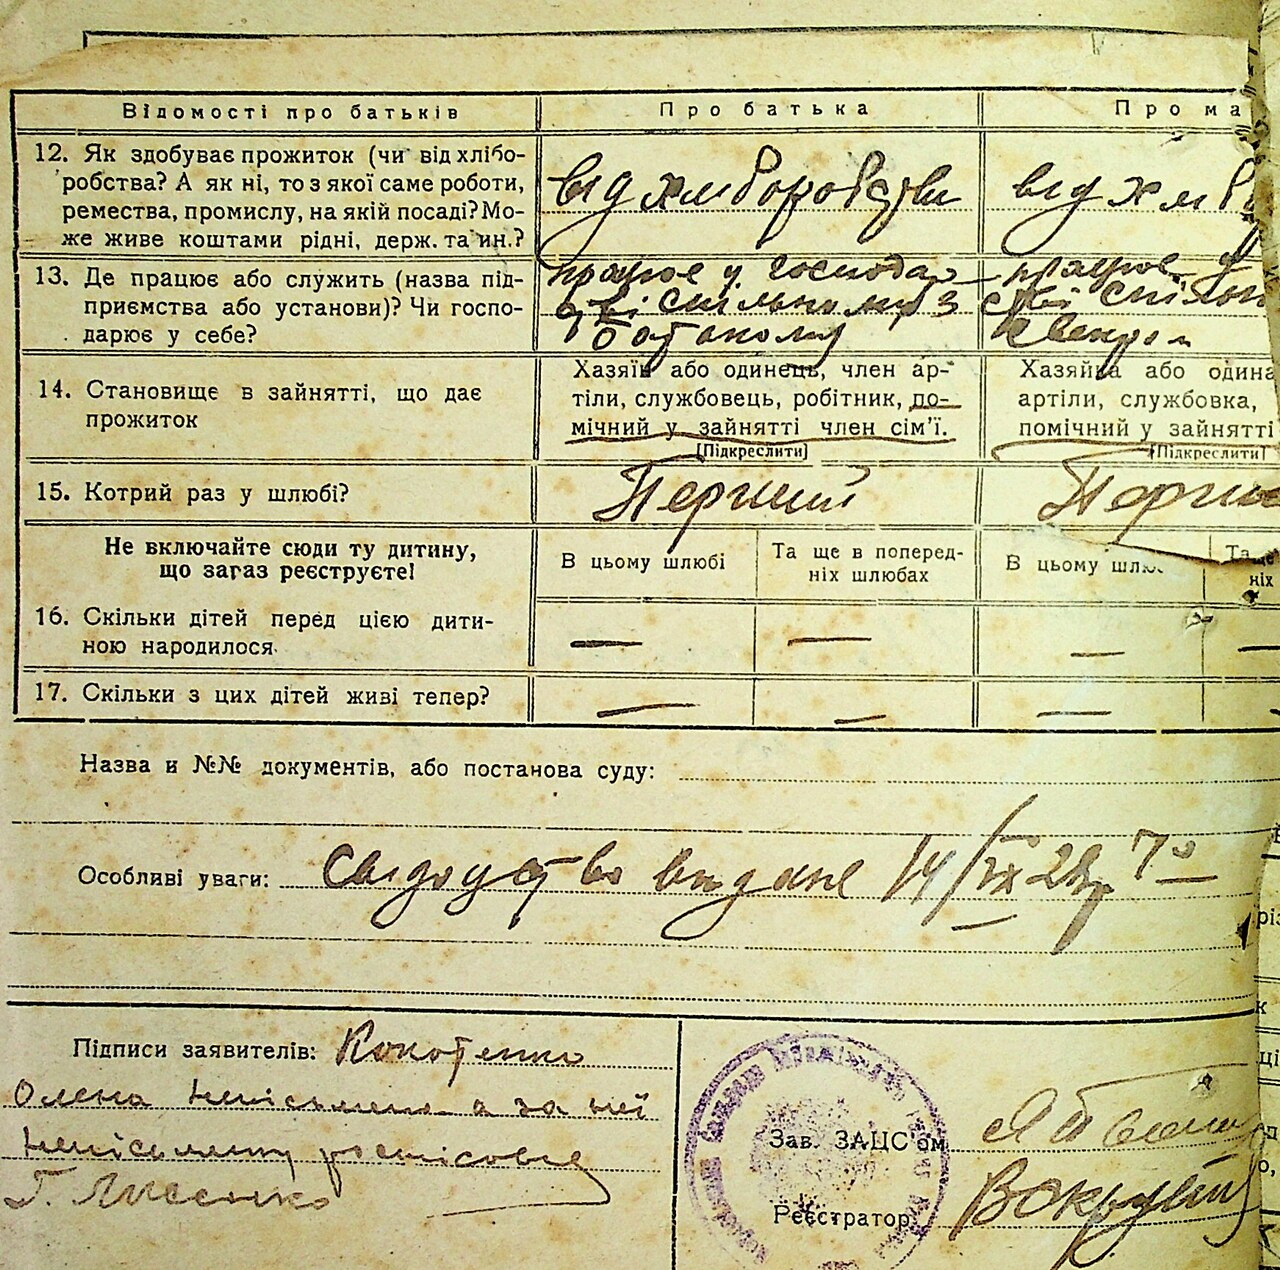 Відомості про батьків
Про батька
Про ма
12. Як здобуває прожиток (чи від хлібо-
робства? А як ні, то з якої саме роботи,
ремества, промислу, на якій посаді? Мо-
же живе коштами рідні, держ. та ин.?
від хліборобства
від хліб
13. Де працює або служить (назва під-
приємства або установи)? Чи госпо-
дарює у себе?
працює у господар
стві спільному з
батьком
працює у
стві спільно
свекром
14. Становище в зайнятті, що дає
прожиток
Хазяїн або одинець, член ар-
тіли, службовець, робітник, по-
мічний у зайнятті член сім'ї.
[Підкреслити]
Хазяйка або одина
артіли, службовка,
помічний у зайнятті
[Підкреслити]
15. Котрий раз у шлюбі?
Перший
Перши
Не включайте сюди ту дитину,
що зараз реєструєте!
В цьому шлюбі
Та ще в поперед-
ніх шлюбах
В цьому шлю
Та ще
ніх
16. Скільки дітей перед цією дити-
ною народилося.
— — — —
17. Скільки з цих дітей живі тепер?
— — —
Назва и №№ документів, або постанова суду:
Особливі уваги: Свідоцтво видане 14/IX 28р
Підписи заявителів: Кокотенко
Олена неписьмена а за неї
неписьмену росписовся
Г. Лисенко
Зав. ЗАЦС'ом
Реєстратор